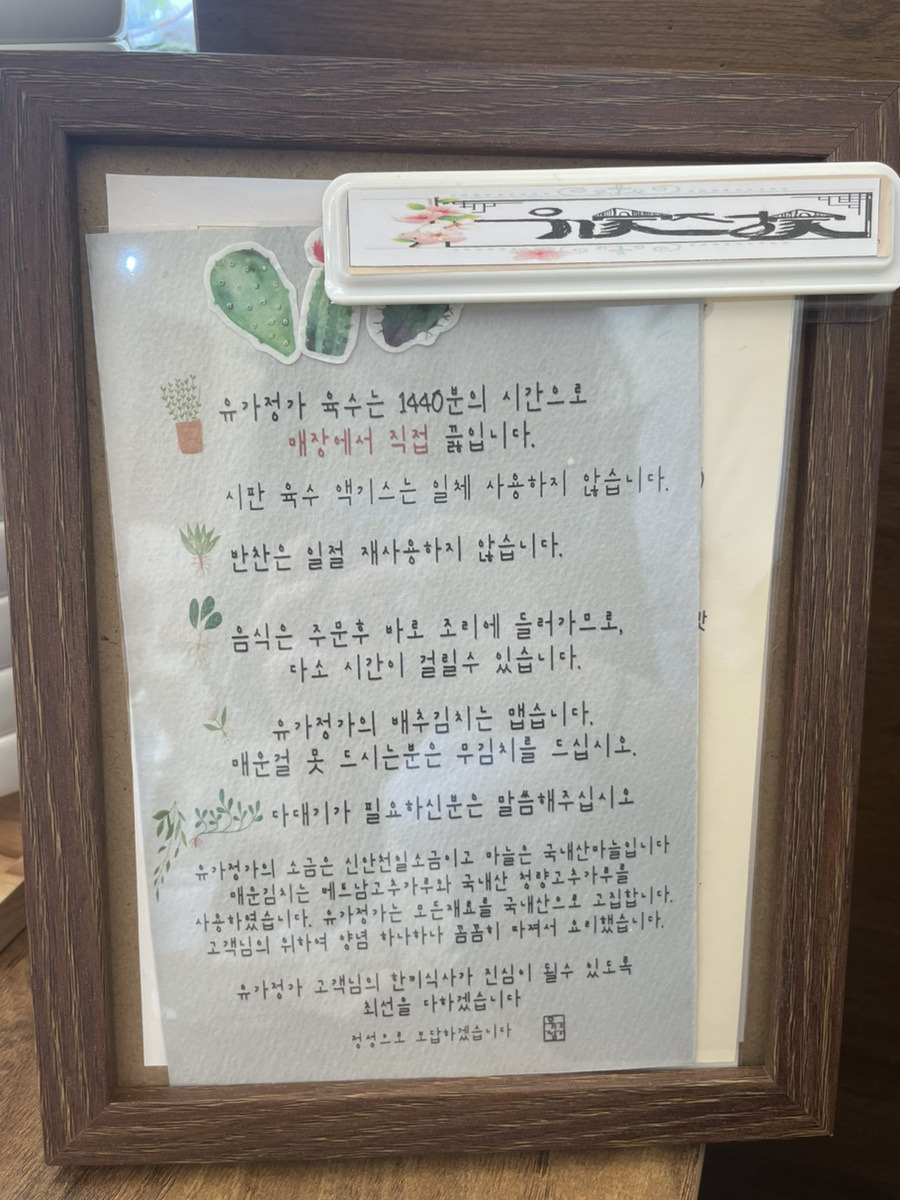 유가정가 육수는 1440분의 시간으로
매장에서 직접 끓입니다.
시판 육수 액기스는 일체 사용하지 않습니다.
반찬은 일절 재사용하지 않습니다.
음식은 주문후 바로 조리에 들러가므로,
다소 시간이 걸릴수 있습니다.
유가정가의 배추김치는 맵습니다.
매운걸 못 드시는분은 무김치를 드십시오.
다대기가 필요하신분은 말씀해주십시오
유가정가의 소금은 신안천일소금이고 마늘은 국내산마늘입니다
매운김치는 베트남고추가루와 국내산 청량고추가루를
사용하였습니다. 유가정가는 모든재료를 국내산으로 고집합니다.
고객님의 위하여 양념 하나하나 꼼꼼히 따져서 요리했습니다.
유가정가 고객님의 한끼식사가 진심이 될수 있도록
최선을 다하겠습니다
정성으로 보답하겠습니다